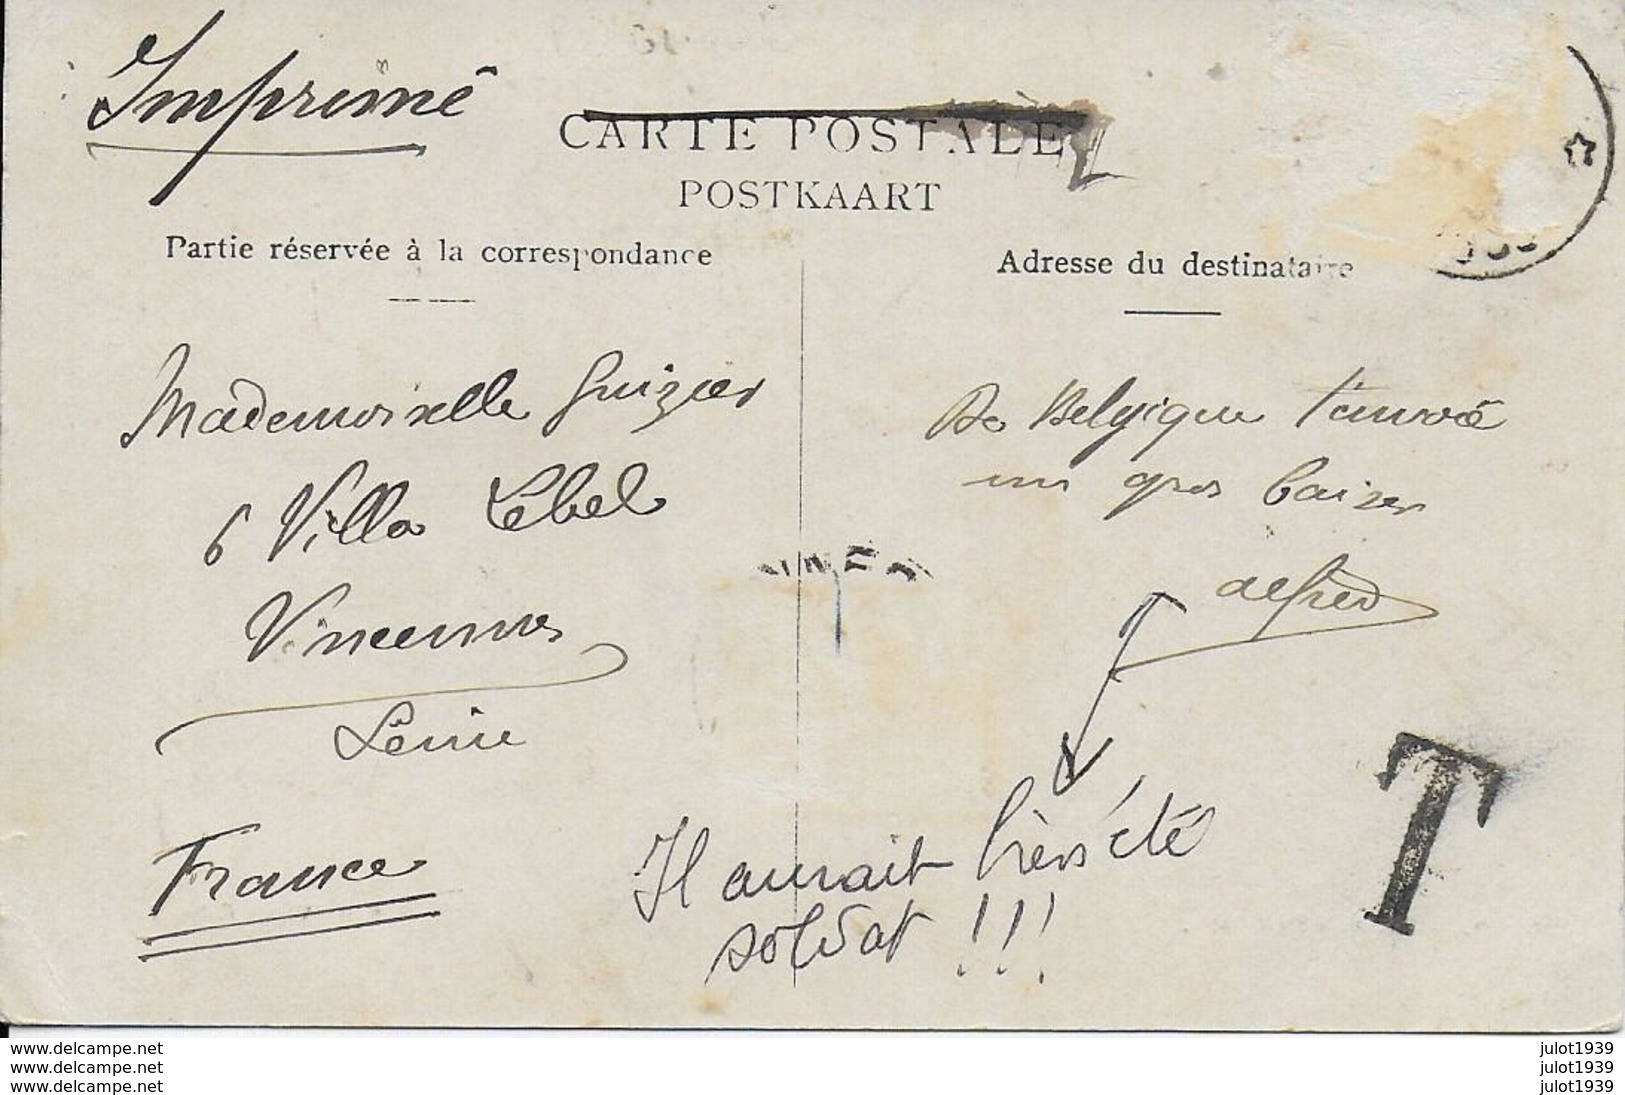 Imprimé
CARTE POSTALE
POSTKAART
Partie réservée à la correspondance
Adresse du destinataire
Mademoiselle Guizier
6 Villa Lebel
Vincennes
Seine
France
De Belgique t'envoie
un gros baiser
alfred
Il aurait très été
soldat !!!
T
www.delcampe.net
www.delcampe.net
www.delcampe.net
julot1939
julot1939
julot1939